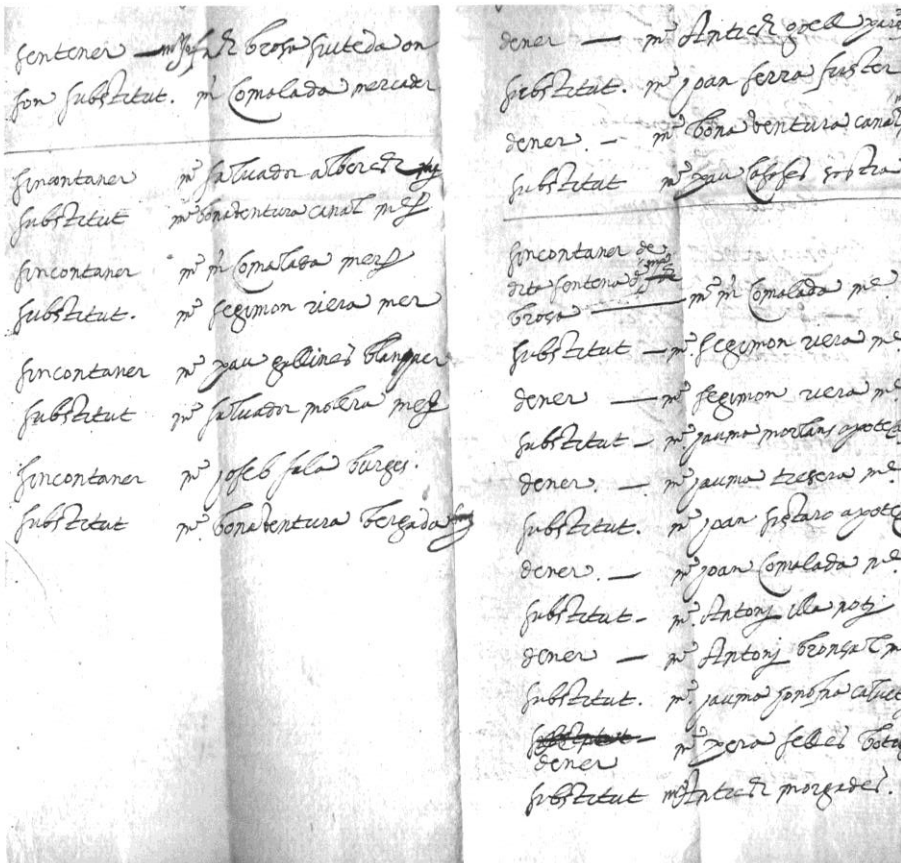 sentener — brosa siuteda on
fon substitut. mº Comalada mercader
sincontaner mº saluador alberch
substitut mº bonaventura canal mer
sincontaner mº mº Comalada mer
substitut. mº segimon riera mer
sincontaner mº pau gallines blanquer
substitut mº saluador molera mer
sincontaner mº joseb sala burges.
substitut mº bonaventura bergada
dener — mº Antich goell
substitut. mº joan serra fuster
dener. — mº bona ventura canal
substitut mº pau
sincontaner de
dita sentena de
brosa — mº mº Comalada me
substitut — mº segimon riera me
dener — mº segimon riera me
substitut — mº jauma morlans apoteca
dener. — mº jauma tresera me
substitut. mº joan sistaro apoteca
dener. — mº joan Comalada me
substitut — mº Antonj illa
dener — mº Antonj bronsal m
substitut. mº jauma
dener mº pera felles
substitut mº Antich morgades.